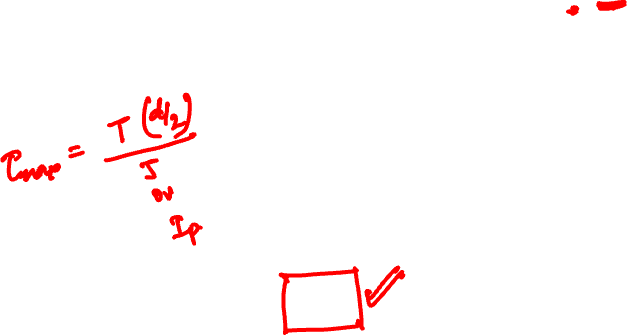 τmax = T (d/2)
J
or
Ip